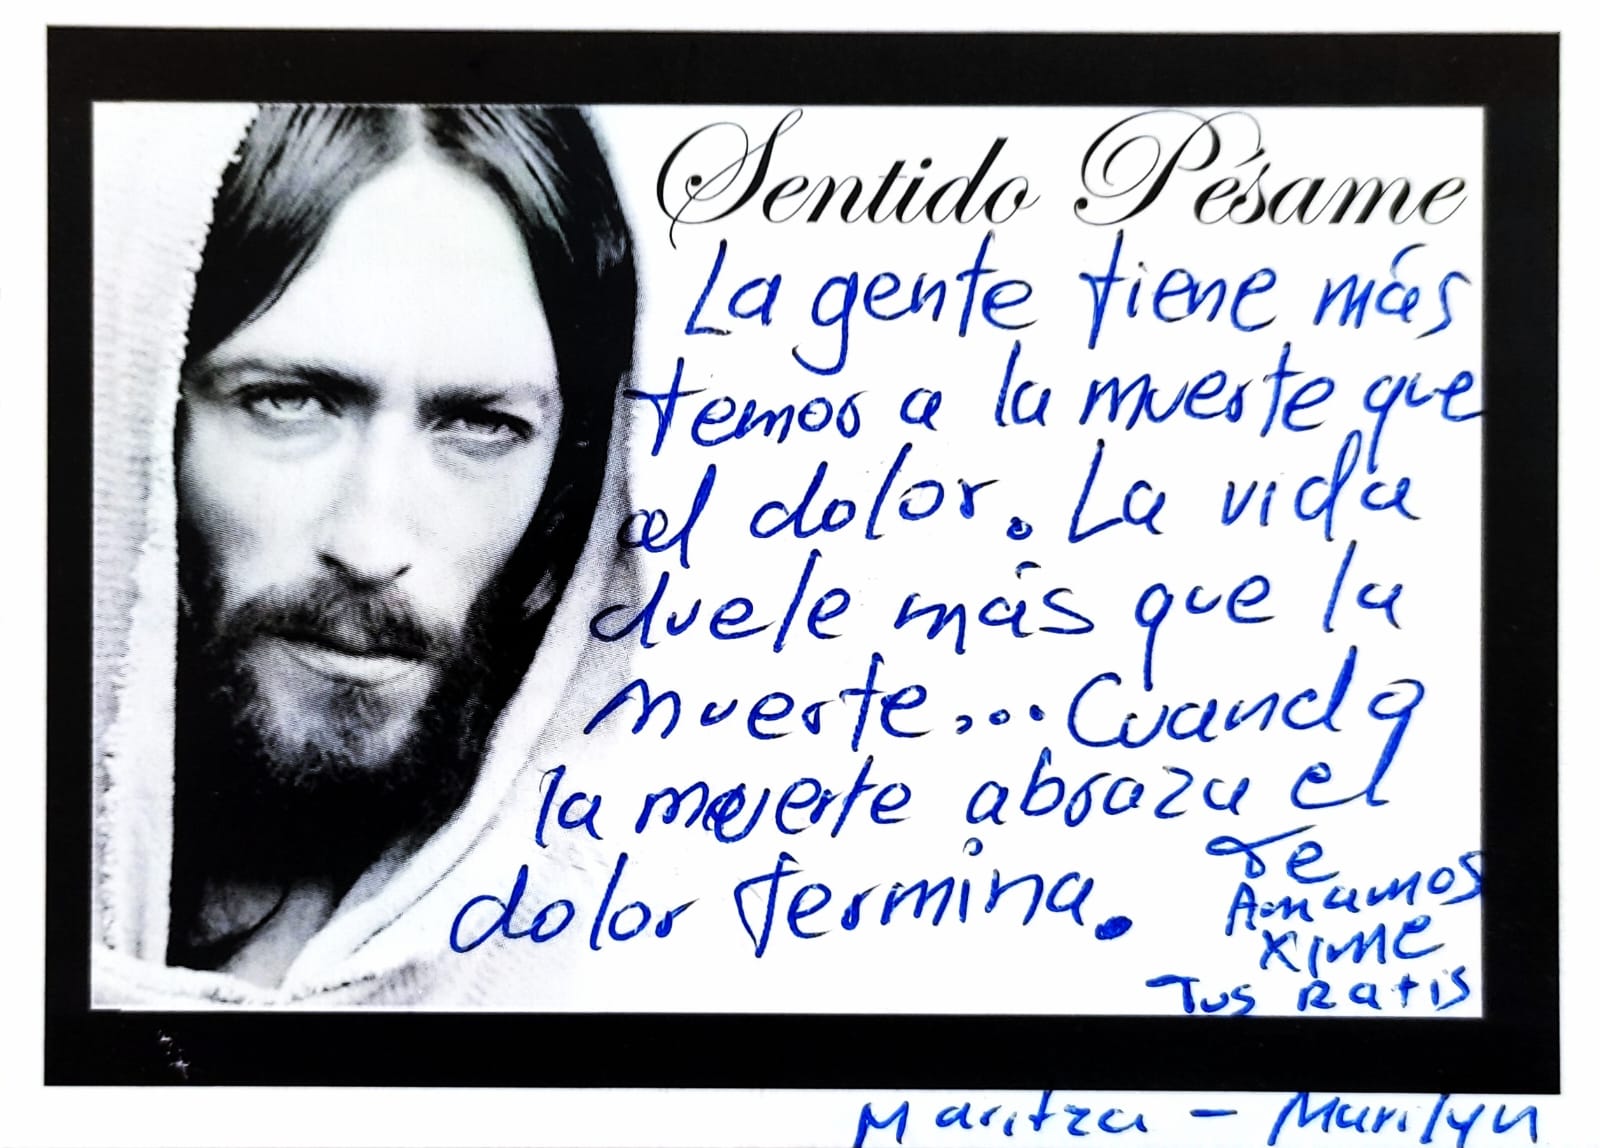 Sentido Pésame
La gente tiene más
temor a la muerte que
al dolor. La vida
duele más que la
muerte... Cuando
la muerte abraza el
dolor termina.
Te
Amamos
Xime
Tus Ratis
Maritza - Marilyn